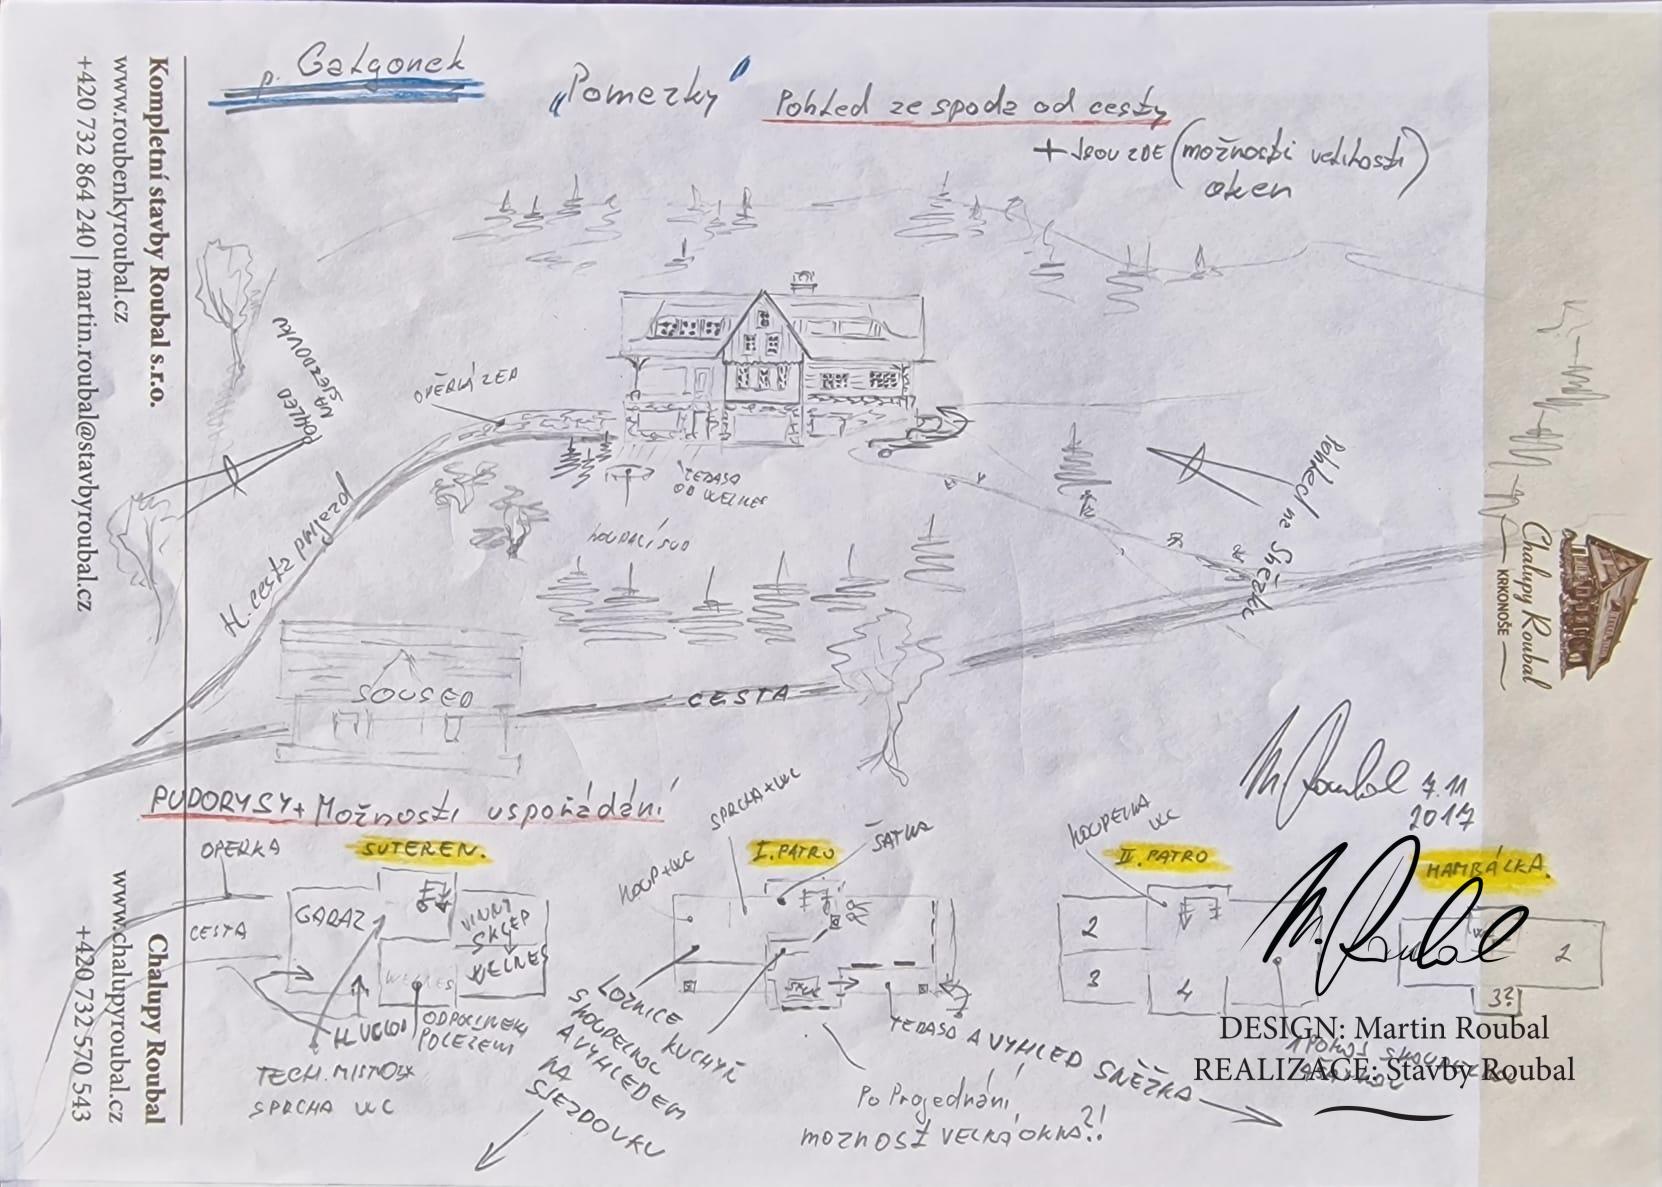 p. Galgonek
„Pomezky"
Pohled ze spoda od cesty
+ JSOU ZDE (možnosti velikosti)
oken
Kompletní stavby Roubal s.r.o.
www.roubenkyroubal.cz
+420 732 864 240 | martin.roubal@stavbyroubal.cz
POHLED
NA
SJEZDOVKU
OPĚRNÁ ZEĎ
H. cesta příjezd
TERASA
OD WELNES
KOUPACÍ SUD
Pohled na Sněžku
Chalupy Roubal
KRKONOŠE
SOUSED
CESTA
M. Roubal 7.11
2017
PUDORYSY + Možnosti uspořádání
OPERKA
SUTEREN.
CESTA
GARAZ
VINNY
SKLEP
WELNES
WELNES
H. VCHOD
ODPOCINEK
POLEZENI
TECH. MISTNOST
SPRCHA WC
KOUP+WC
SPRCHA+WC
I. PATRO
ŠATNA
LOZNICE
S KOUPELNOU
A VYHLEDEM
NA
SJEZDOVKU
KUCHYŇ
TERASA A VYHLED SNĚŽKA
Po Projednání,
MOZNOST VELKÁ OKNA?!
KOUPELNA
WC
II. PATRO
2
3
4
HAMBÁLKA.
2
3?
M. Roubal
DESIGN: Martin Roubal
REALIZACE: Stavby Roubal
Chalupy Roubal
www.chalupyroubal.cz
+420 732 570 543